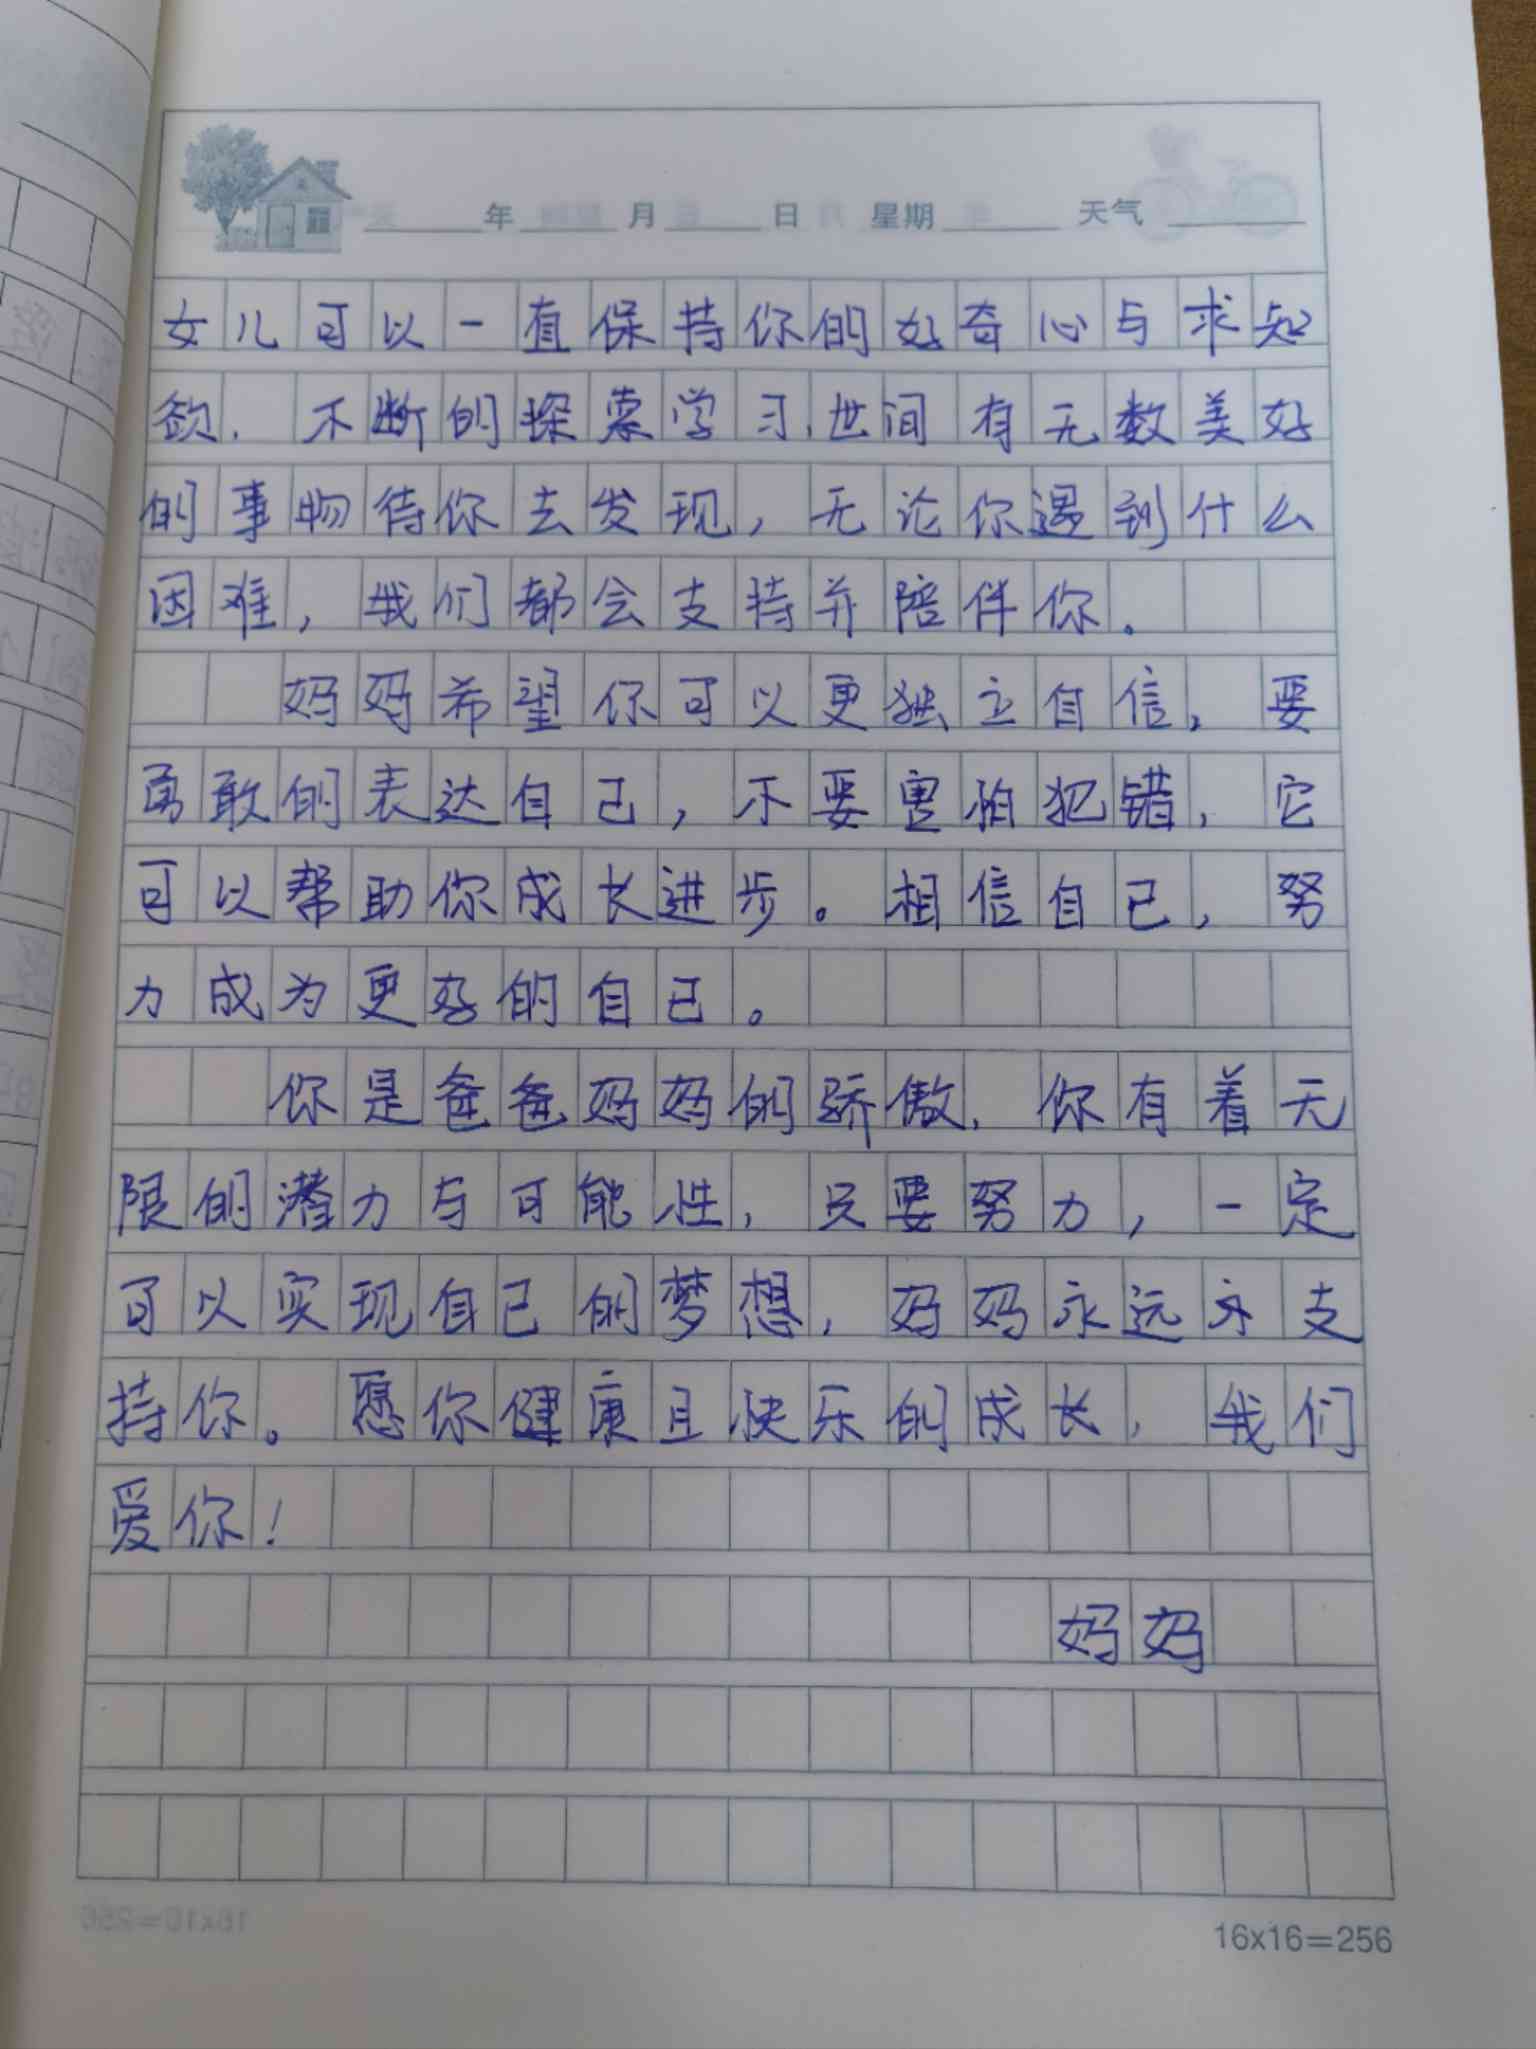 年 月 日 星期 天气
女儿可以一直保持你的好奇心与求知
欲,不断的探索学习,世间有无数美好
的事物待你去发现,无论你遇到什么
困难,我们都会支持并陪伴你。
妈妈希望你可以更独立自信,要
勇敢的表达自己,不要害怕犯错,它
可以帮助你成长进步。相信自己,努
力成为更好的自己。
你是爸爸妈妈的骄傲,你有着无
限的潜力与可能性,只要努力,一定
可以实现自己的梦想,妈妈永远支
持你。愿你健康且快乐的成长,我们
爱你!
妈妈
16x16=256